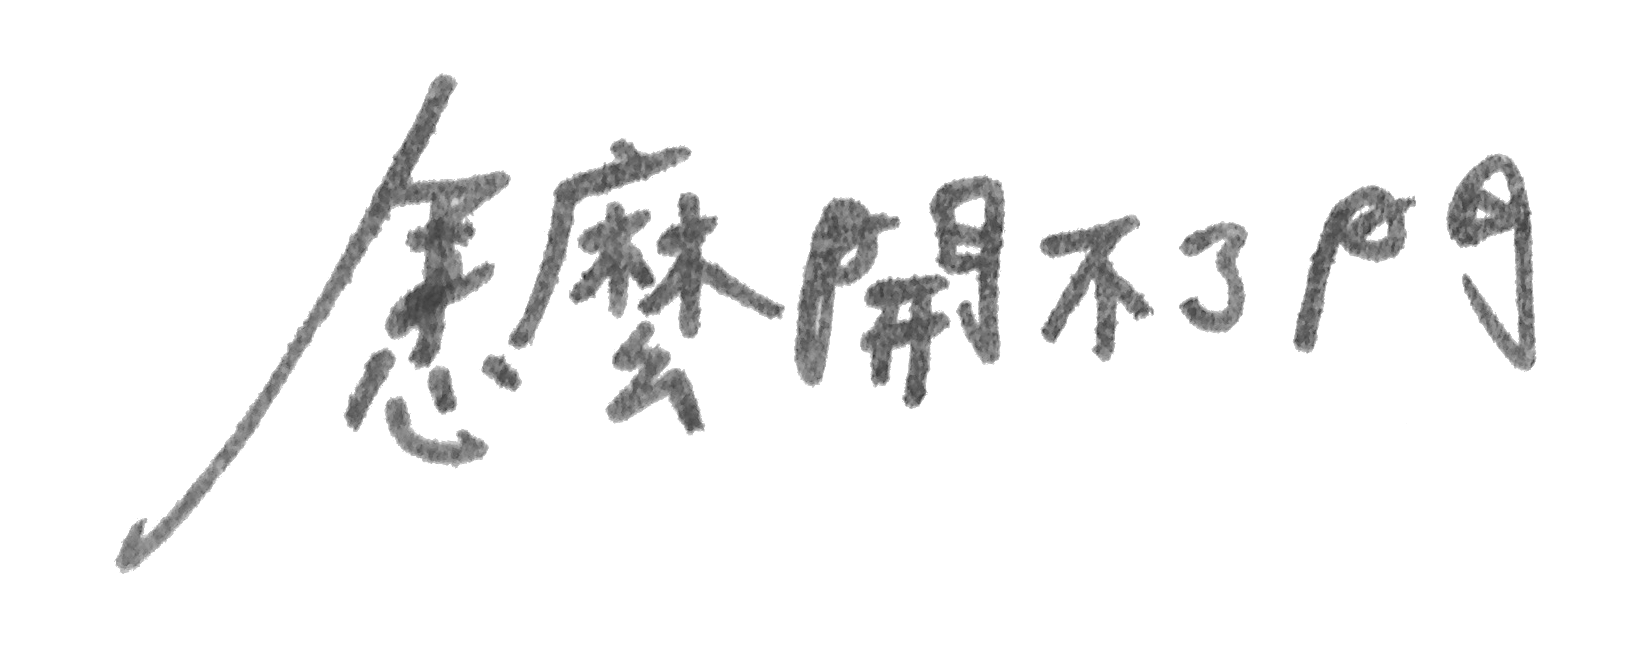 怎麼開不了門